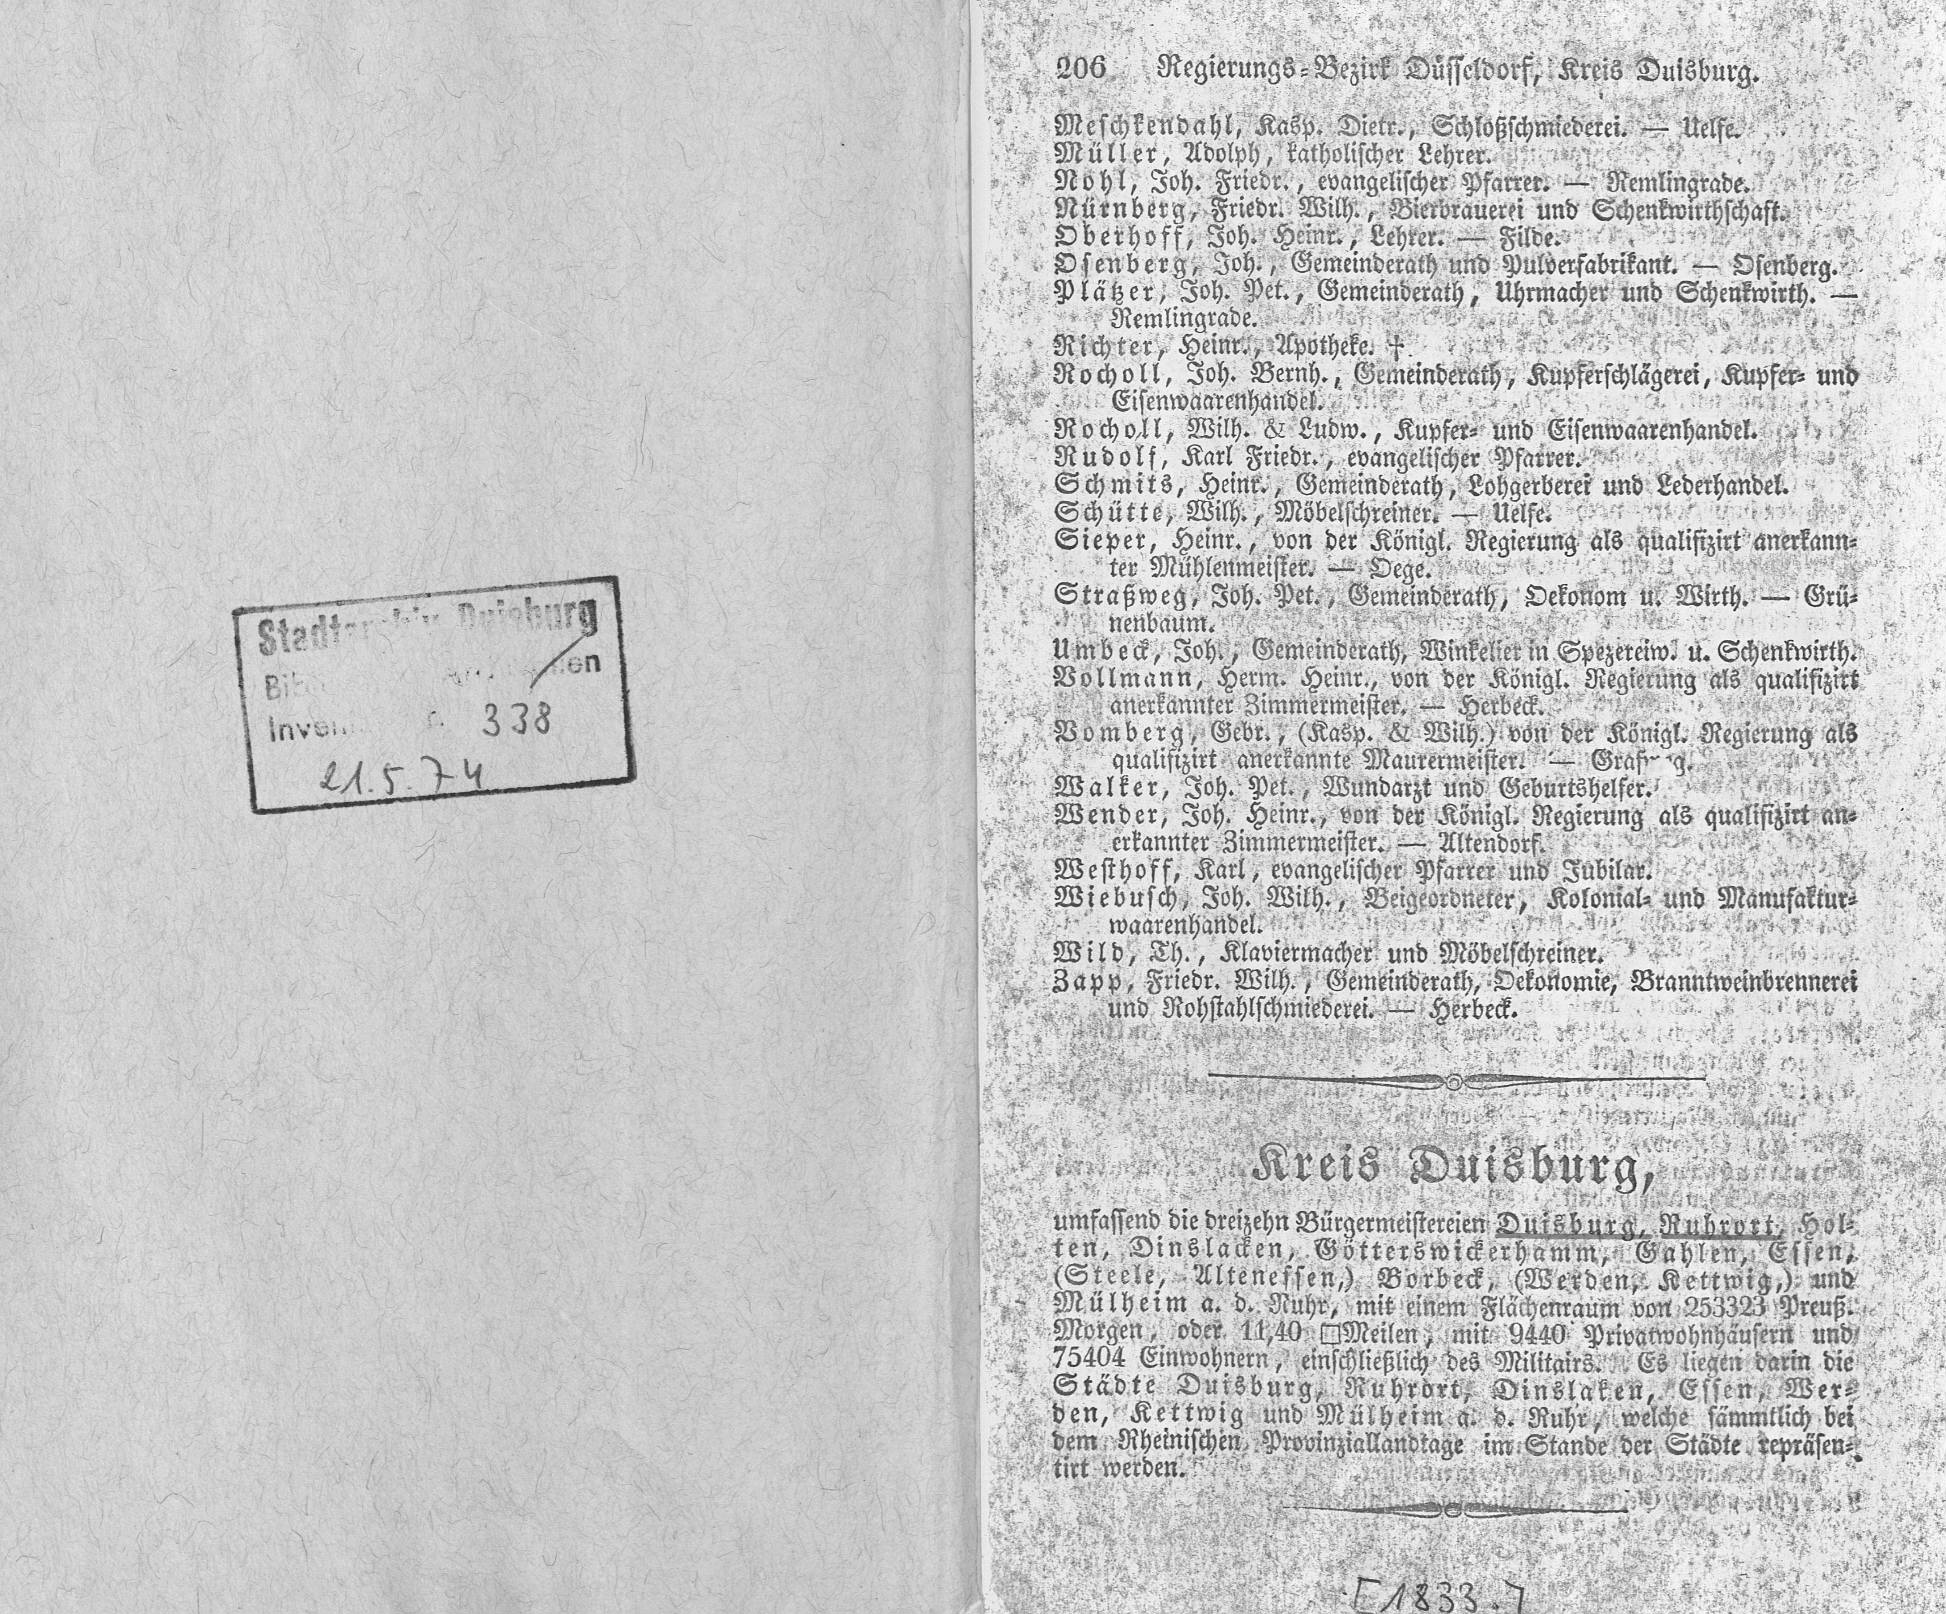 Stadtarchiv Duisburg
338
21.5.74
206 Regierungs-Bezirk Düsseldorf, Kreis Duisburg.
Meschkendahl, Kasp. Dietr., Schloßschmiederei. — Uelfe.
Müller, Adolph, katholischer Lehrer.
Nohl, Joh. Friedr., evangelischer Pfarrer. — Remlingrade.
Nürnberg, Friedr. Wilh., Bierbrauerei und Schenkwirthschaft.
Oberhoff, Joh. Heinr., Lehrer. — Filde.
Osenberg, Joh., Gemeinderath und Pulverfabrikant. — Osenberg.
Plätzer, Joh. Pet., Gemeinderath, Uhrmacher und Schenkwirth. —
Remlingrade.
Richter, Heinr., Apotheke. †
Rocholl, Joh. Bernh., Gemeinderath, Kupferschlägerei, Kupfer- und
Eisenwaarenhandel.
Rocholl, Wilh. & Ludw., Kupfer- und Eisenwaarenhandel.
Rudolf, Karl Friedr., evangelischer Pfarrer.
Schmits, Heinr., Gemeinderath, Lohgerberei und Lederhandel.
Schütte, Wilh., Möbelschreiner. — Uelfe.
Sieper, Heinr., von der Königl. Regierung als qualifizirt anerkann-
ter Mühlenmeister. — Oege.
Straßweg, Joh. Pet., Gemeinderath, Oekonom u. Wirth. — Grü-
nenbaum.
Umbeck, Joh., Gemeinderath, Winkelier in Spezereiw. u. Schenkwirth.
Vollmann, Herm. Heinr., von der Königl. Regierung als qualifizirt
anerkannter Zimmermeister. — Herbeck.
Vomberg, Gebr., (Kasp. & Wilh.) von der Königl. Regierung als
qualifizirt anerkannte Maurermeister. —
Walker, Joh. Pet., Wundarzt und Geburtshelfer.
Wender, Joh. Heinr., von der Königl. Regierung als qualifizirt an-
erkannter Zimmermeister. — Altendorf.
Westhoff, Karl, evangelischer Pfarrer und Jubilar.
Wiebusch, Joh. Wilh., Beigeordneter, Kolonial- und Manufaktur-
waarenhandel.
Wild, Th., Klaviermacher und Möbelschreiner.
Zapp, Friedr. Wilh., Gemeinderath, Oekonomie, Branntweinbrennerei
und Rohstahlschmiederei. — Herbeck.
Kreis Duisburg,
umfassend die dreizehn Bürgermeistereien Duisburg, Ruhrort, Hol-
ten, Dinslacken, Götterswickerhamm, Gahlen, Essen,
(Steele, Altenessen,) Borbeck, (Werden, Kettwig,) und
Mülheim a. d. Ruhr, mit einem Flächenraum von 253323 Preuß.
Morgen, oder 11,40 □Meilen, mit 9440 Privatwohnhäusern und
75404 Einwohnern, einschließlich des Militairs. Es liegen darin die
Städte Duisburg, Ruhrort, Dinslaken, Essen, Wer-
den, Kettwig und Mülheim a. d. Ruhr, welche sämmtlich bei
dem Rheinischen Provinziallandtage im Stande der Städte repräsen-
tirt werden.
[1833.]